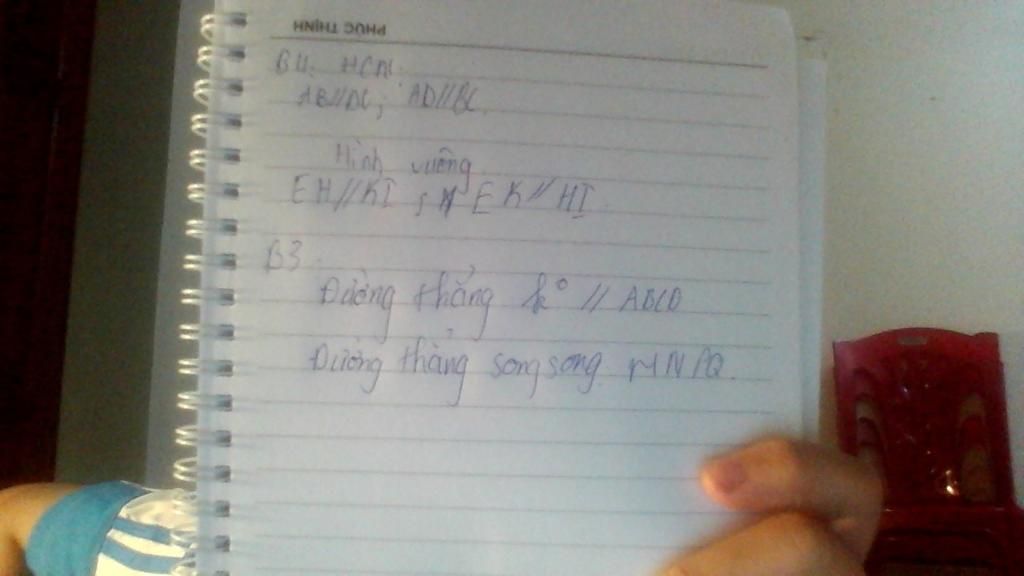 PHÚC THỊNH
B4. HCN.
AB//DC; AD//BC.
Hình vuông
EH//KI ; EK//HI
B3.
Đường thẳng k° // ABCD
Đường thẳng song song MNPQ.